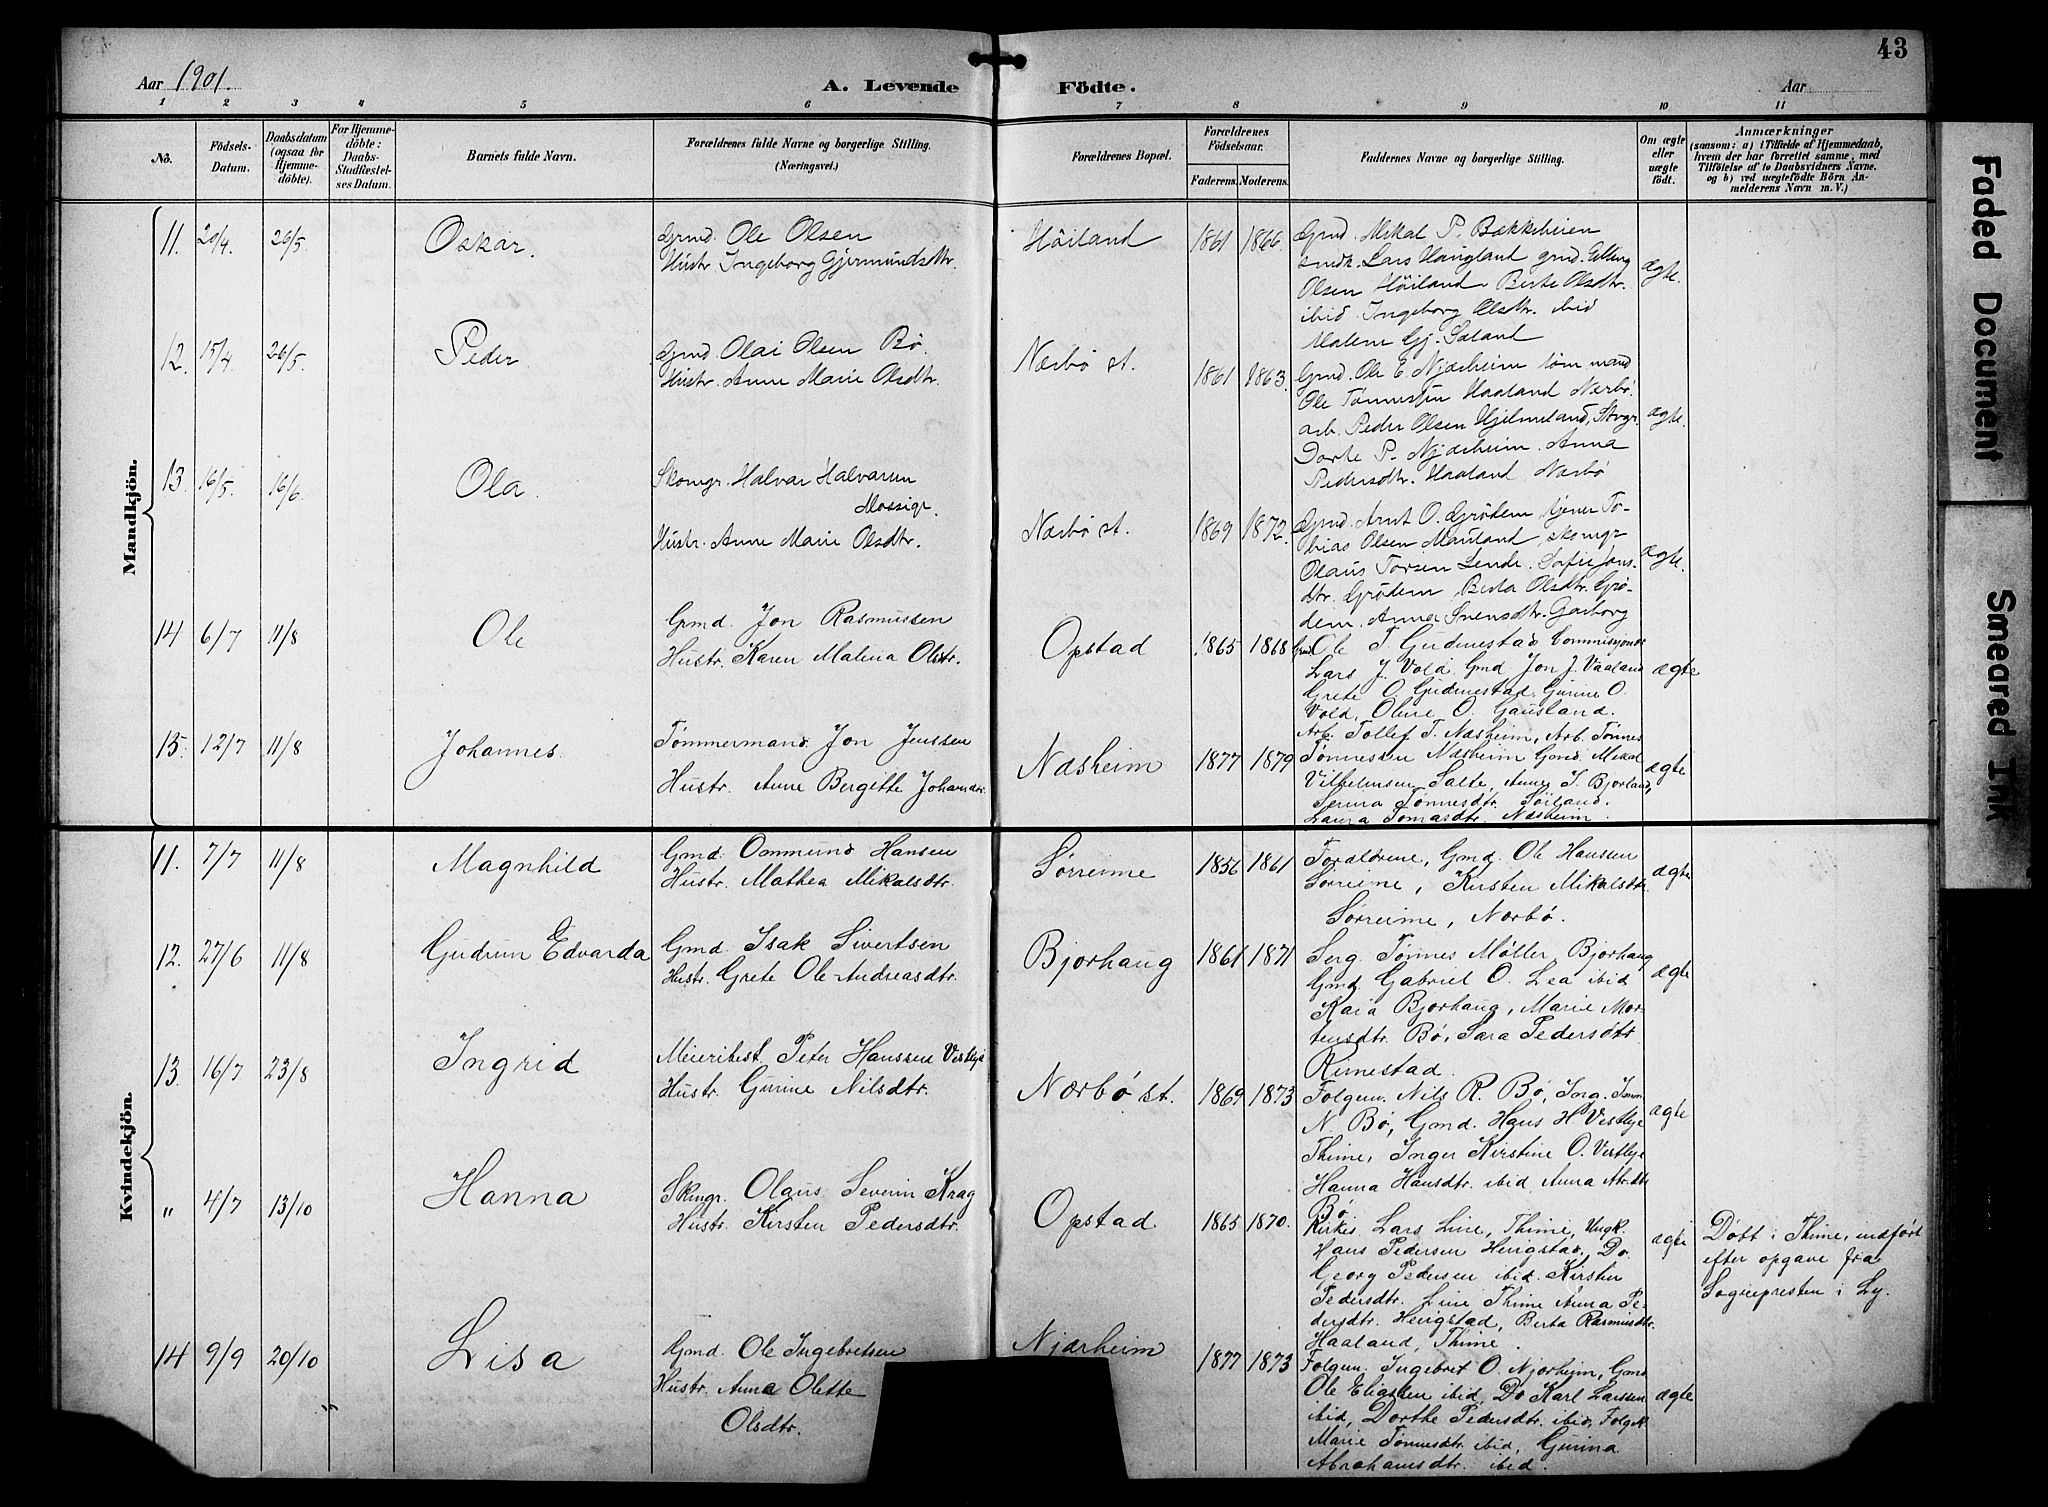 43
Aar 1901.
A. Levende Födte.
Aar
1 2 3 4 5 6 7 8 9 10 11
No.
Födsels-Datum.
Daabsdatum (ogsaa for Hjemme-döbte).
For Hjemme-döbte: Daabs-Stadfæstel-ses Datum.
Barnets fulde Navn.
Forældrenes fulde Navne og borgerlige Stilling. (Næringsvei.)
Forældrenes Bopæl.
Forældrenes Födselsaar.
Faderens. Moderens.
Faddernes Navne og borgerlige Stilling.
Om ægte eller uægte födt.
Anmærkninger
(saasom: a) i Tilfælde af Hjemmedaab, hvem der har forrettet samme, med Tilföielse af to Daabsvidners Navne. og b) ved uægtefödte Börn An-melderens Navn m. V.)
Mandkjön.
11. 20/4. 26/5. Oskar.
Grmd. Ole Olsen
Hustr. Ingeborg Gjermundsdtr.
Höiland 1861 1866.
Grmd. Mikal P. Bækkeheien
smdk. Lars Haugland grmd.
Olsen Höiland Berte Olsdtr.
ibid Ingeborg Olsdtr. ibid
Malem Gj.
ægte.
12. 15/4 26/5. Peder
Grmd. Olai Olsen Bø.
Hustr. Anne Marie Olsdtr.
Nærbö st. 1861 1863.
Grmd. Ole E. Njærheim tøm mand
Ole Tønnessen Haaland Nærbö.
arb. Peder Olsen Hjelmeland,
Dorte P. Njærheim. Anna
Pedersdtr. Haaland Nærbö
ægte.
13. 16/5. 16/6. Ola.
Skomgr. Halvar Halvarsen
Mossige.
Hustr. Anne Marie Olsdtr.
Nærbö st. 1869 1872.
Grmd. Arnt O. Grödem tjener To-
bias Olsen Mauland, skomgr
Olaus Torsen Lende. Sofie Jons-
dtr. Grödem Berta Olsdtr. Grö-
dem. Anna Svensdtr. Garborg
ægte.
14 6/7 11/8 Ole
Grmd. Jon Rasmussen
Hustr. Karen Malena Olstr.
Opstad 1865 1868
Grmd Ole T. Gudmestad Commisjonær
Lars J. Vold, Gmd Jon J. Vaaland
Grete O. Gudmestad. Gurine O.
Vold, Oline O. Gausland.
ægte
15. 12/7 11/8 Johannes.
Tømmermand Jon Jenssen
Hustr. Anne Bergitte Johansdtr.
Næsheim 1877 1879
Arb. Tollef T. Næsheim, Arb. Tønnes
Tønnessen Næsheim Gmd. Mikal
Vilhelmsen Salte, Anne S. Bjorland,
Serina Tønnesdtr. Söiland.
Laura Tomasdtr. Næsheim.
ægte
Kvindekjön.
11. 7/7 11/8 Magnhild
Gmd. Ommund Hansen
Hustr. Mathea Mikalsdtr.
Sørreime 1856 1861
Foraldrene, Gmd. Ole Hansen
Sørreime, Kirsten Mikalsdtr.
Sørreime, Nærbø.
ægte
12. 27/6 11/8 Gudrun Edvarda
Gmd. Isak Sivertsen
Hustr. Grete Ole-Andreasdtr.
Bjorhaug 1861 1871
Serg. Tønnes Møller Bjorhaug
Gmd. Gabriel O. Lea ibid
Kaia Bjorhaug, Marie Mor-
tensdtr. Bø, Sara Pedersdtr
Rimestad.
ægte
13. 16/7 23/8 Ingrid
Meieribest. Peter Hanssen Vestlye
Hustr. Gurine Nilsdtr.
Nærbö st. 1869 1873
Folgm. Nils R. Bø, Ing.
N. Bø, Gmd. Hans H. Vestlye
Thime, Inger Kirstine O. Vestlye
Hanna Hansdtr. ibid, Anna
Bø.
ægte
" 4/7 13/10 Hanna
Skmgr. Olaus Severin Krag
Hustr. Kirsten Pedersdtr.
Opstad 1865 1870.
Kirkes. Lars Line, Thime, Ungk.
Hans Pedersen Herigstad, Do.
Georg Pedersen ibid. Kirsten
Pedersdtr. Line Thime Anna Pe-
dersdtr. Herigstad, Berta Rasmusdtr.
Haaland, Thime.
ægte
Döbt i Thime, indført
efter opgave fra
Sognepresten i Ly.
14 9/9 20/10 Lisa
Gmd. Ole Ingebretsen
Hustr. Anna Olette
Olsdtr.
Njærheim 1877 1873
Folgm. Ingebret O. Njorheim, Gmd
Ole Eliassen ibid, Do Karl Larssen
ibid, Dorthe Pedersdtr. ibid, Folgek.
Marie Tønnesdtr. ibid, Gurina
Abrahamsdtr. ibid.
ægte
Faded Document
Smeared Ink